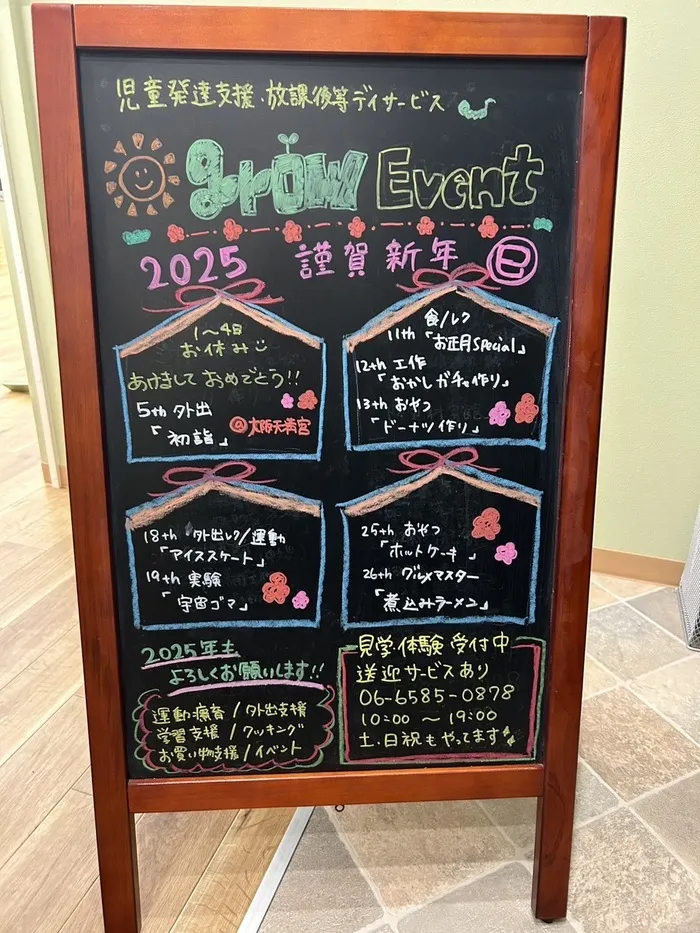 児童発達支援・放課後等デイサービス
grow Event
2025 謹賀新年 巳
1〜4日
お休み
あけましておめでとう!!
5th 外出
「初詣」 @大阪天満宮
食/レク
11th「お正月special」
12th 工作
「おかしガチャ作り」
13th おやつ
「ドーナツ作り」
18th 外出レク/運動
「アイススケート」
19th 実験
「宇宙ゴマ」
25th おやつ
「ホットケーキ」
26th グルメマスター
「煮込みラーメン」
2025年も
よろしくお願いします!!
運動療育/外出支援
学習支援/クッキング
お買い物支援/イベント
見学・体験 受付中
送迎サービスあり
06-6585-0878
10:00 〜 19:00
土・日祝もやってます